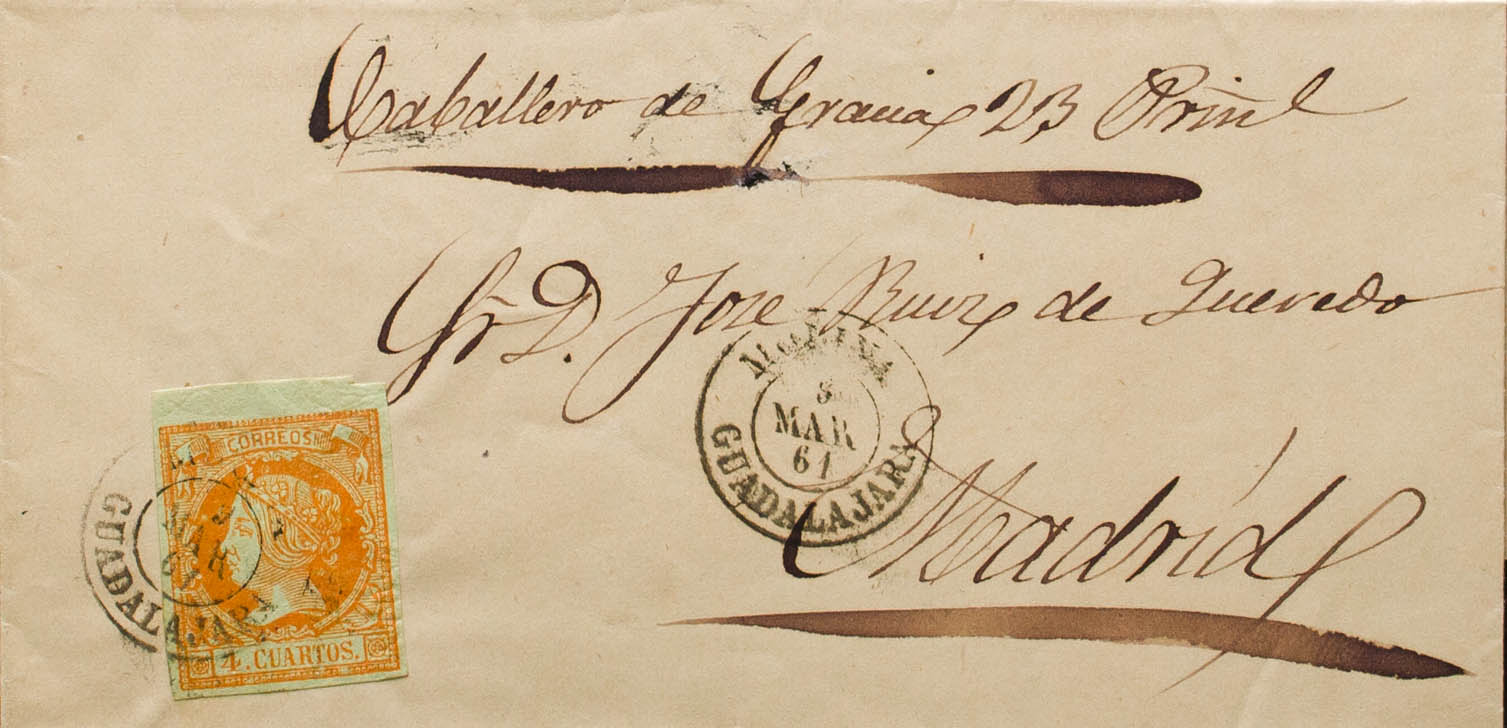 Caballero de Gracia 23 Prinl
Sr. D. Jose Ruiz de Quevedo
MOLINA
8
MAR
61
GUADALAJARA
Madrid
CORREOS
GUADALAJARA
4. CUARTOS.